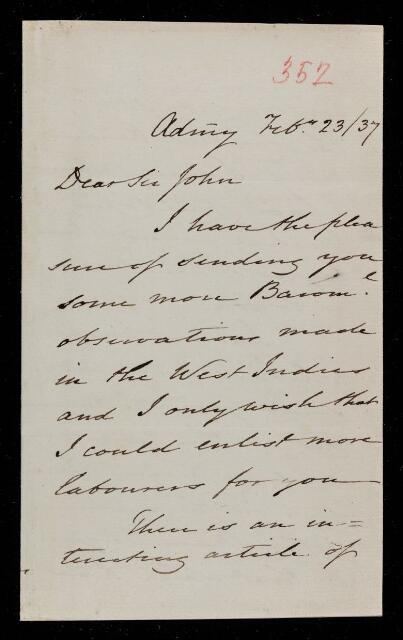 352
Admy Feby 23/37
Dear Sir John
I have the plea
sure of sending you
some more Baroml
observations made
in the West Indies
and I only wish that
I could enlist more
labourers for you
There is an in=
teresting article of